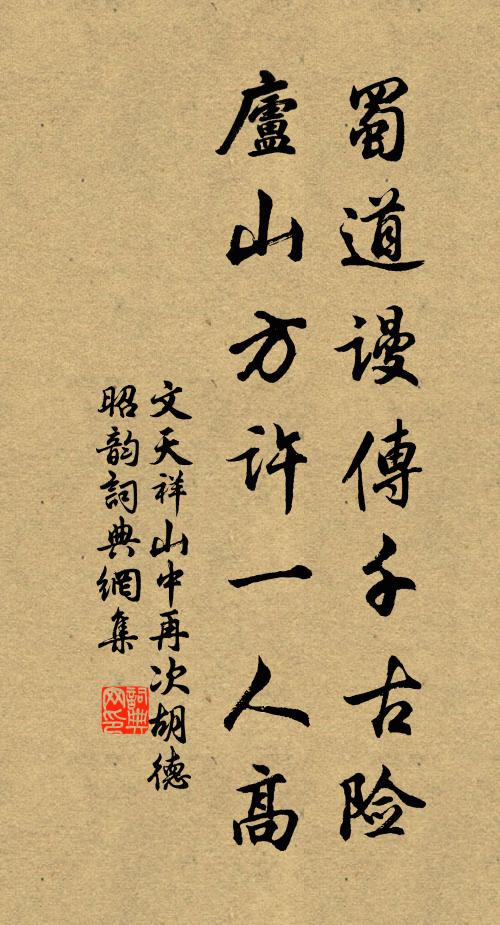 蜀道謾傳千古險
廬山方許一人高
文天祥山中再次胡德
昭韵詞典網集
詞典
网印